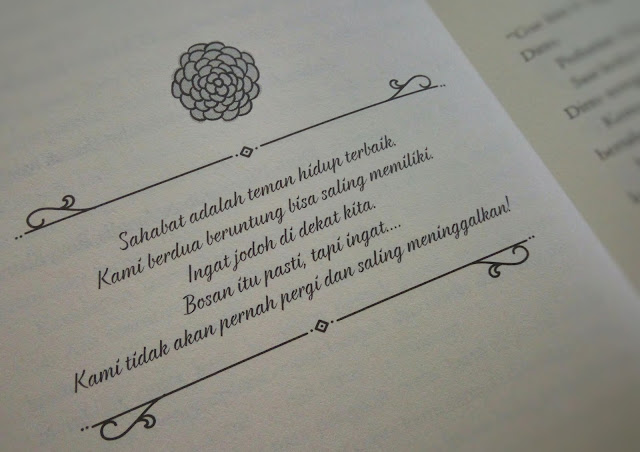 Sahabat adalah teman hidup terbaik.
Kami berdua beruntung bisa saling memiliki.
Ingat jodoh di dekat kita.
Bosan itu pasti, tapi ingat....
Kami tidak akan pernah pergi dan saling meninggalkan!